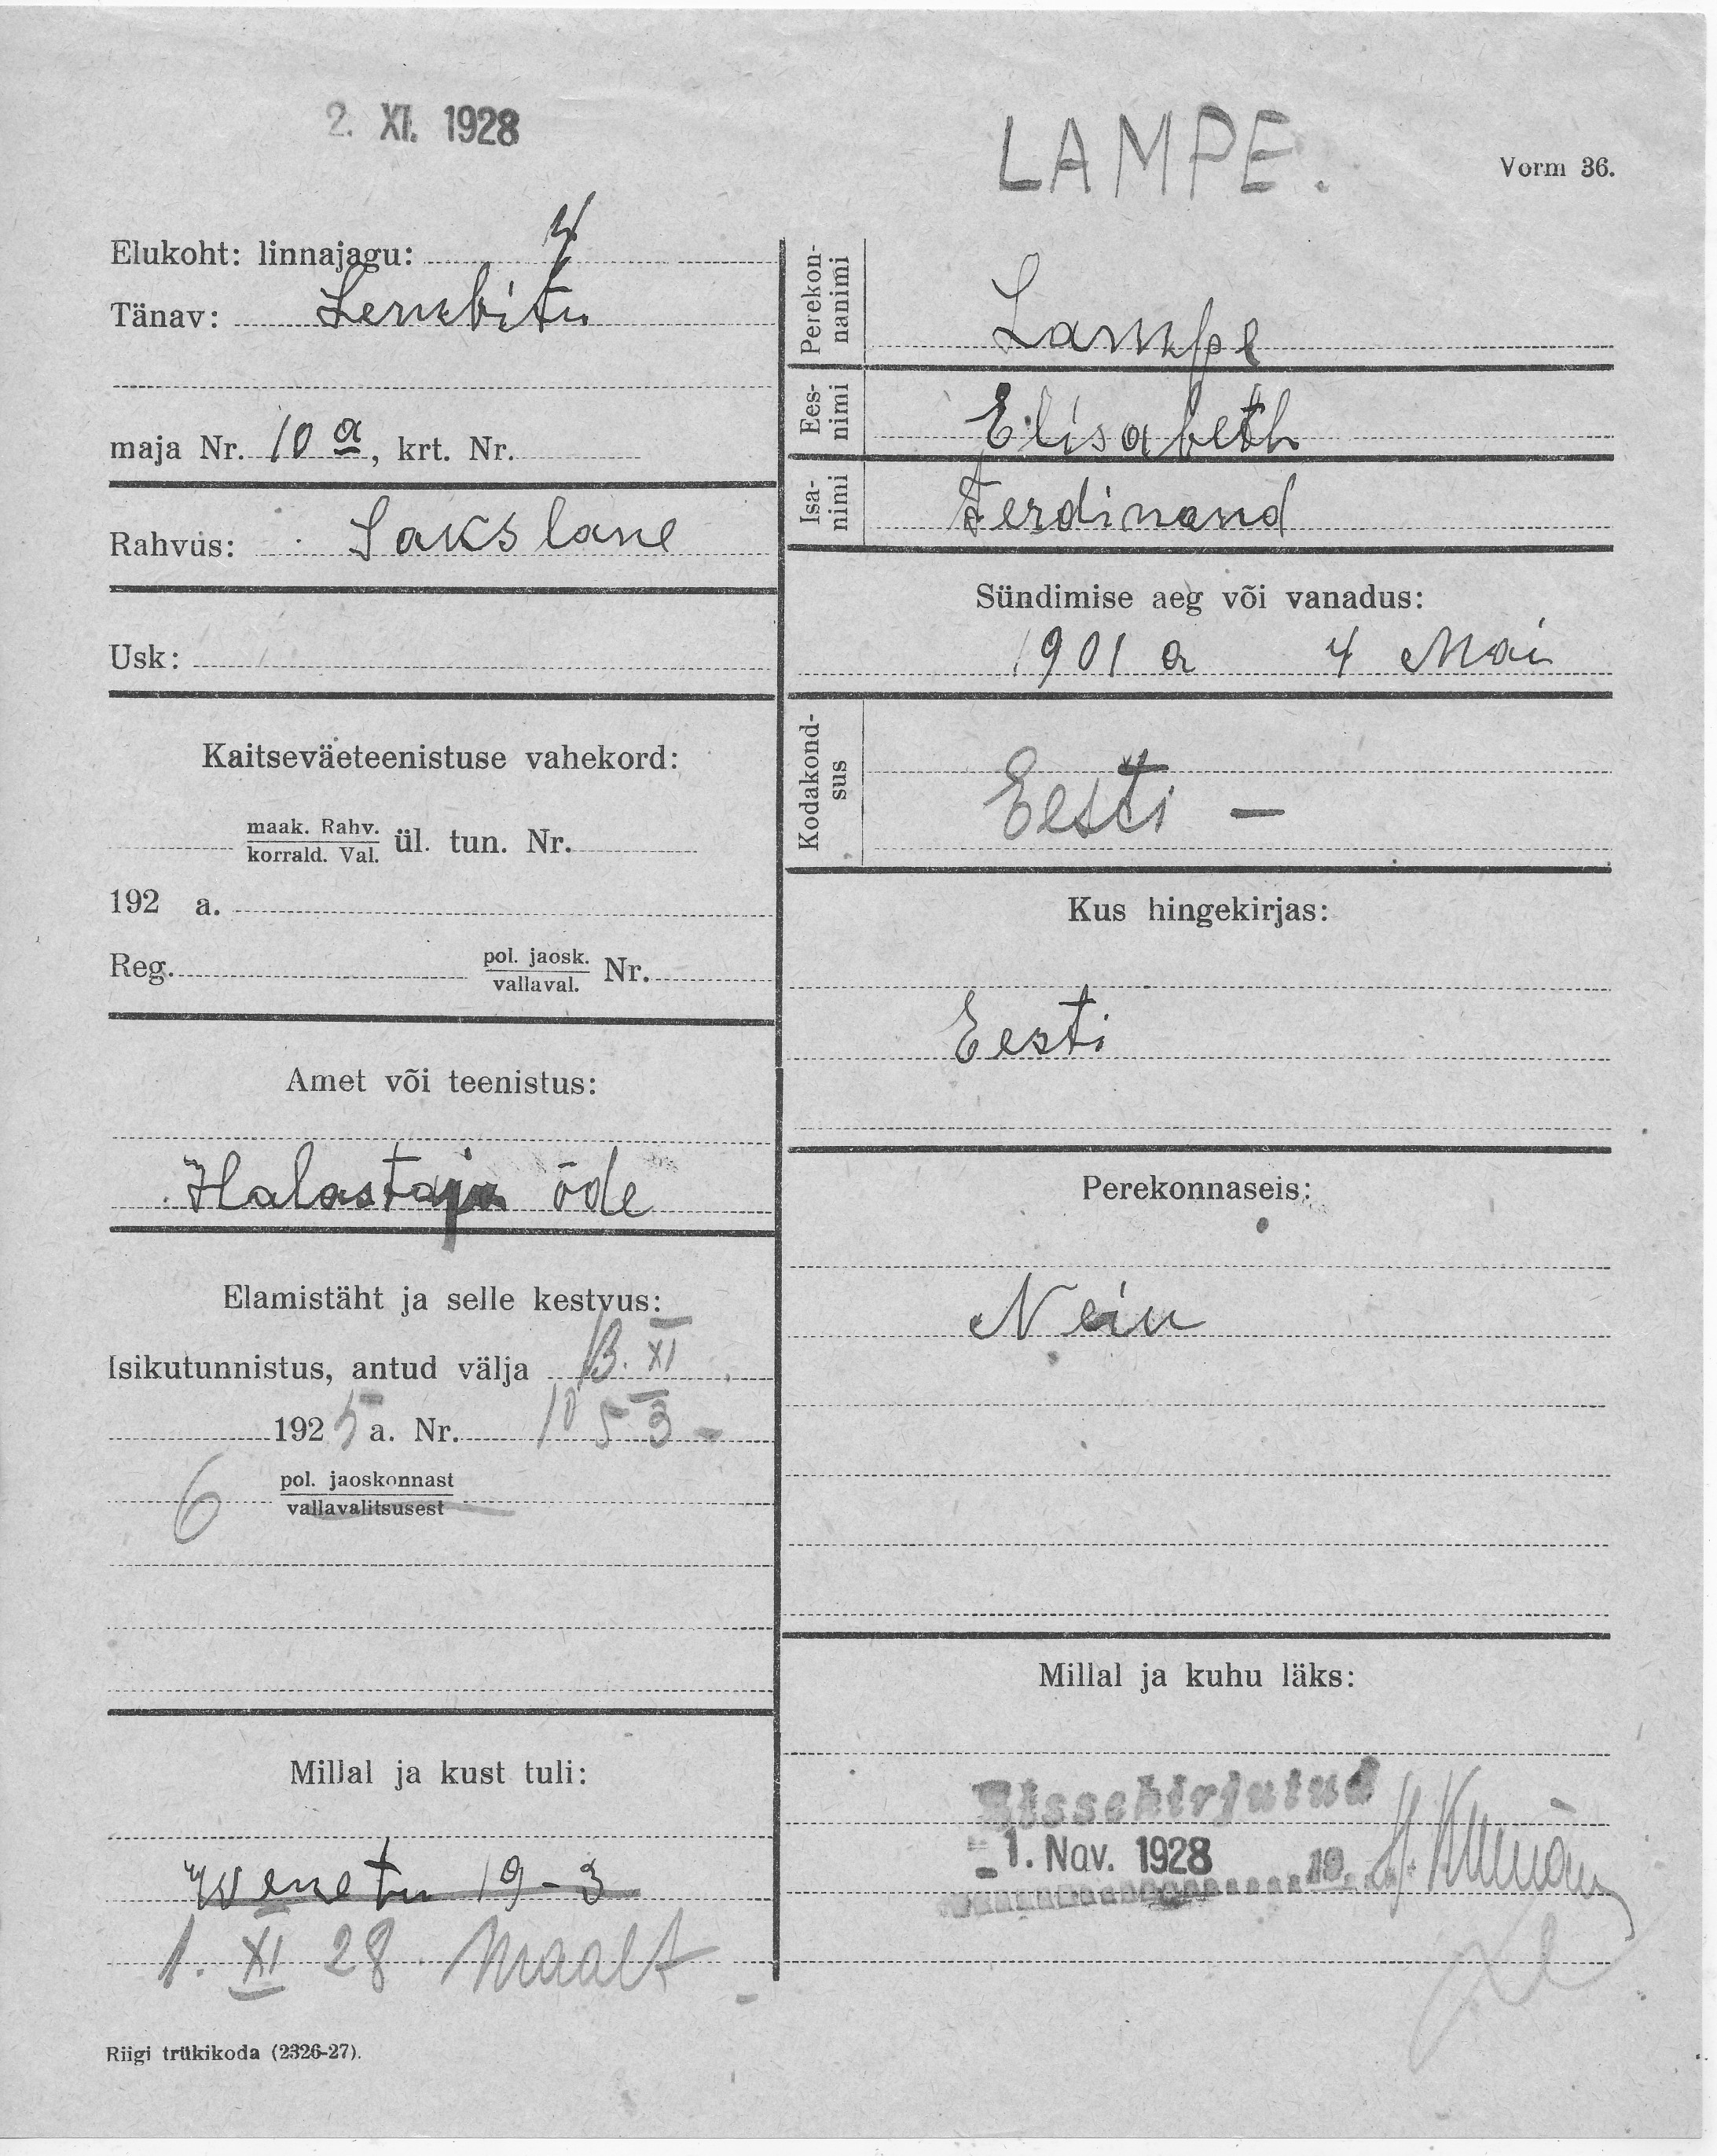 2. XI. 1928
LAMPE.
Vorm 36.
Elukoht: linnajagu: 4
Tänav: Lembitu
maja Nr. 10 a, krt. Nr.
Rahvus: Sakslane
Usk:
Kaitseväeteenistuse vahekord:
maak. Rahv.
korrald. Val.
ül. tun. Nr.
192 a.
Reg. pol. jaosk. Nr.
vallaval.
Amet või teenistus:
Halastaja õde
Elamistäht ja selle kestvus:
Isikutunnistus, antud välja 13. XI
1925 a. Nr. 1053
6 pol. jaoskonnast
vallavalitsusest
Millal ja kust tuli:
Wenetu 19-3
1. XI 28. Maalt
Riigi trükikoda (2326-27).
Perekon-
nanimi
Lampe
Ees-
nimi
Elisabeth
Isa-
nimi
Ferdinand
Sündimise aeg või vanadus:
1901 a 4 Mai
Kodakond-
sus
Eesti —
Kus hingekirjas:
Eesti
Perekonnaseis:
Neiu
Millal ja kuhu läks:
Sissekirjutud
1. Nov. 1928 19